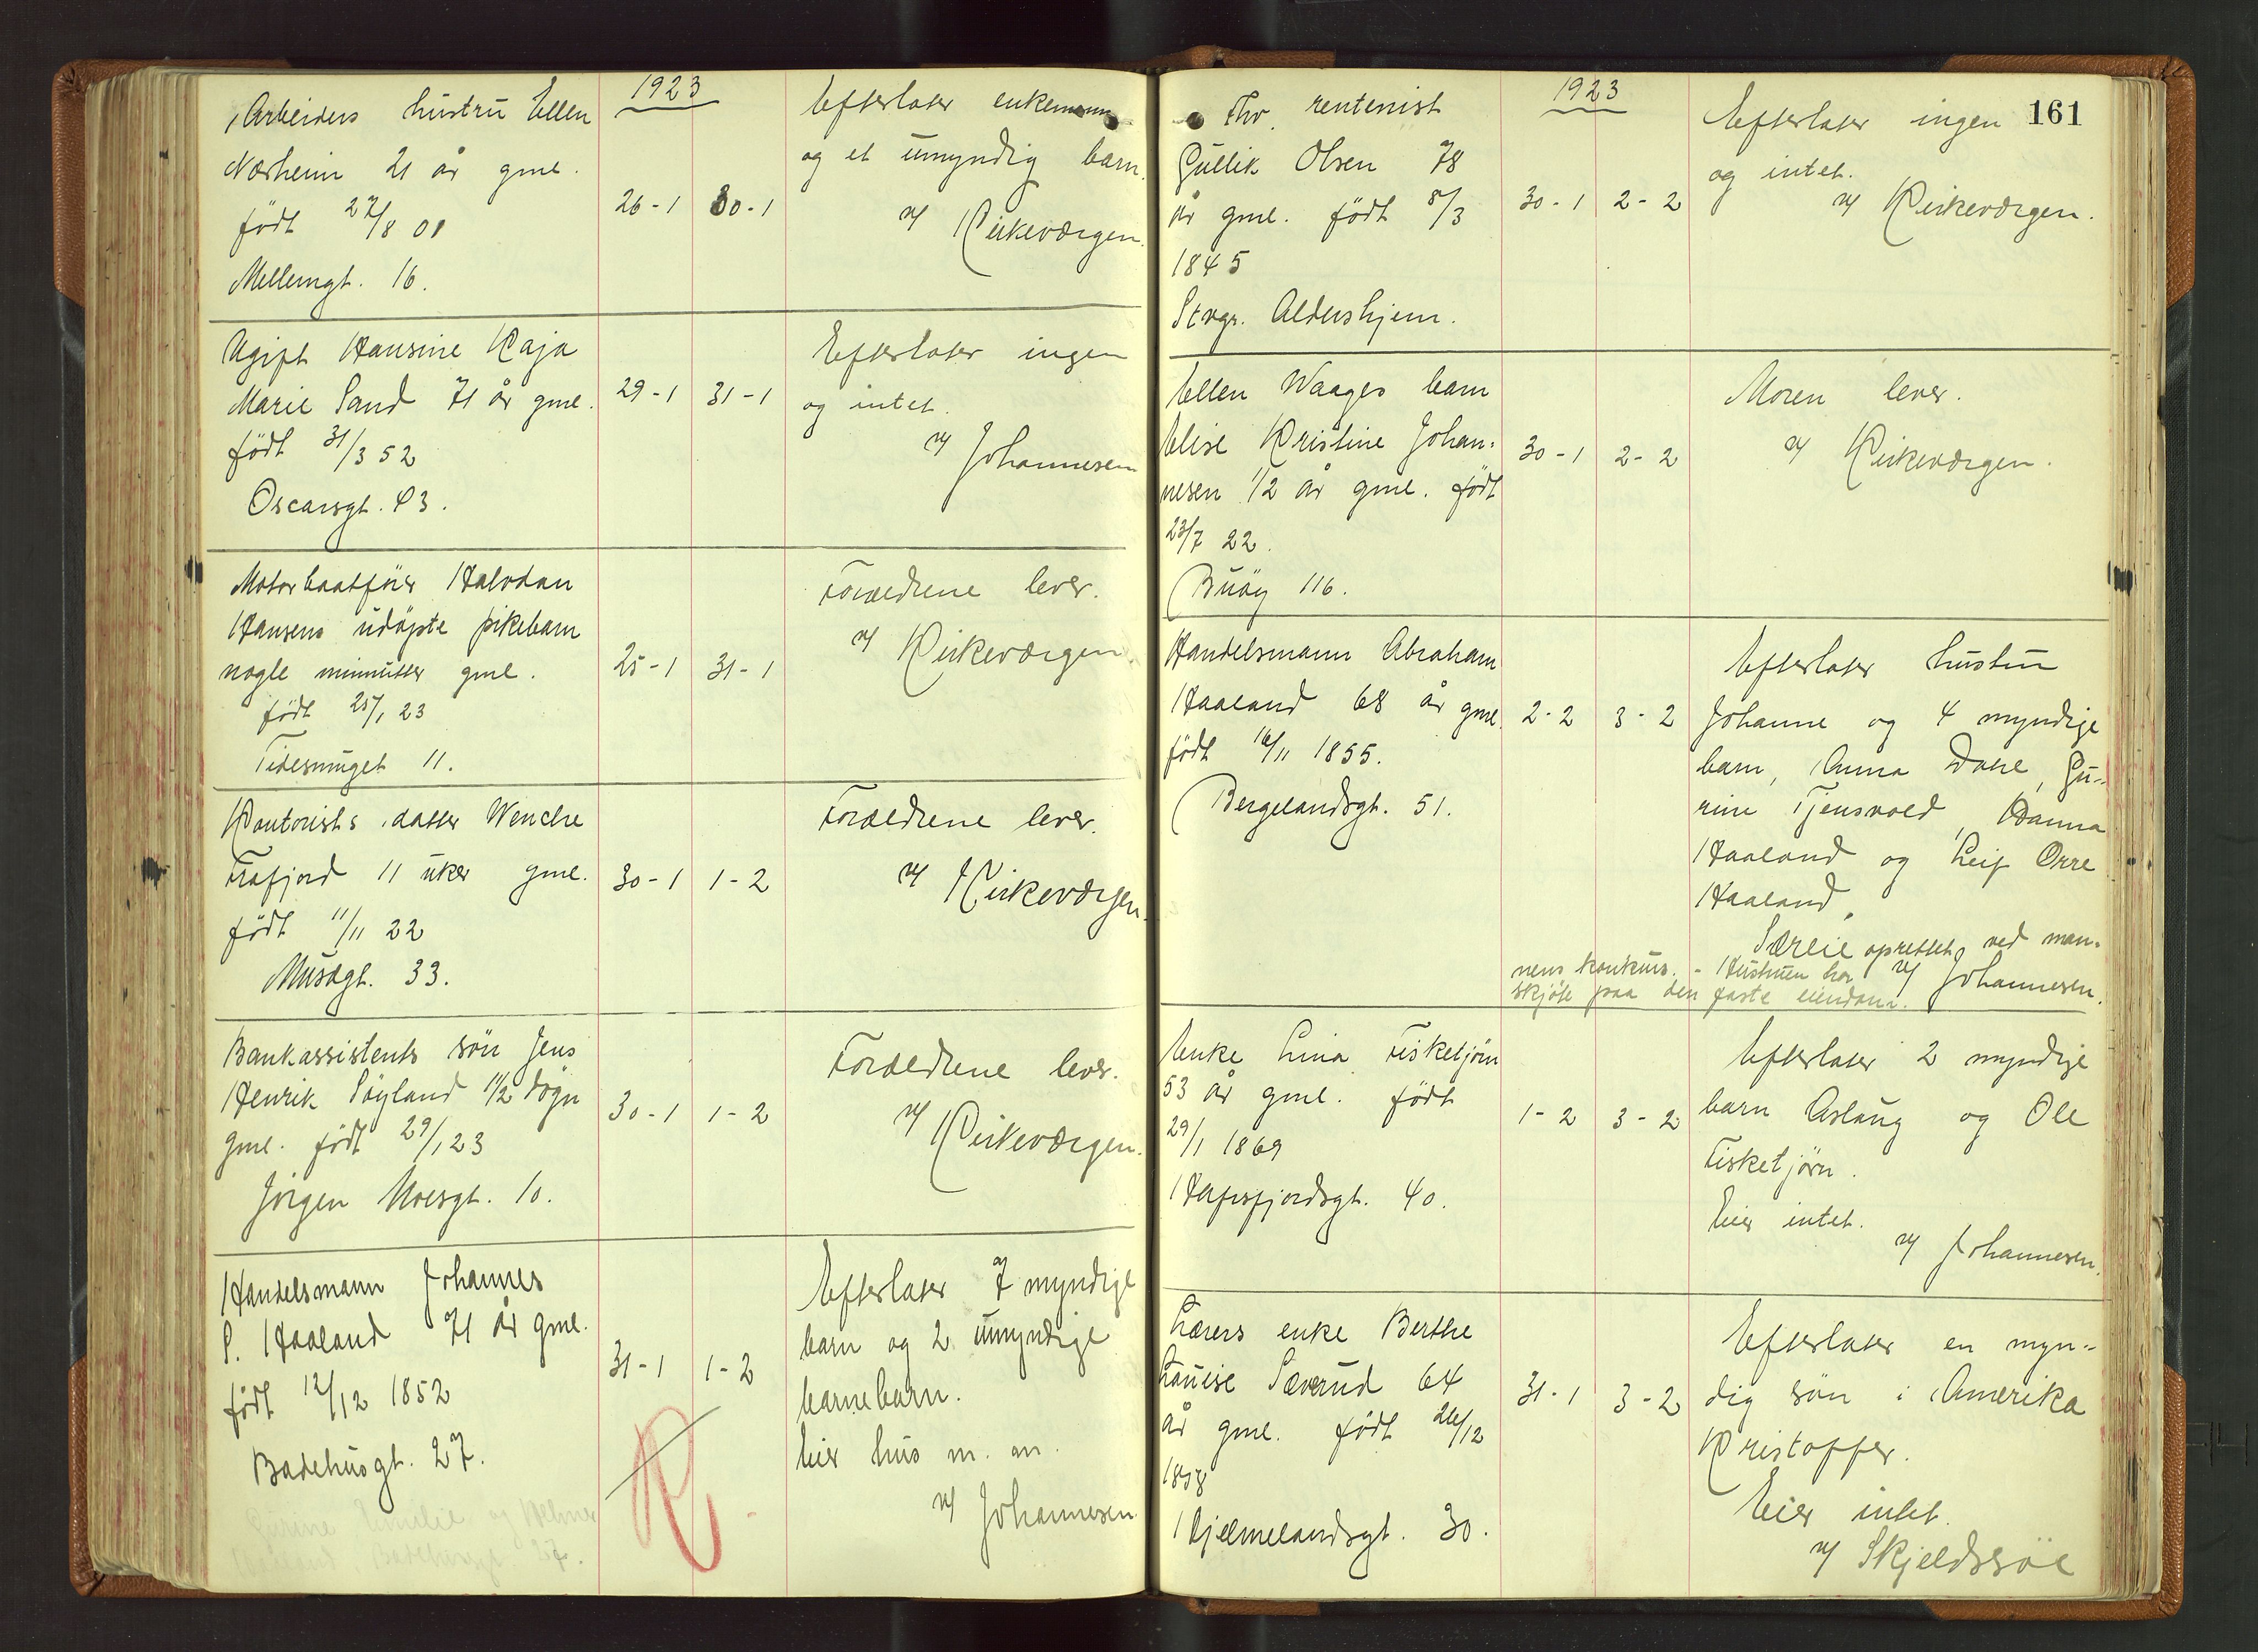 1923
Arbeiders hustru Ellen
Nærheim 21 år gml.
født 27/8 01
Mellemgt. 16.
26-1 30-1
Efterlater enkemann
og et umyndig barn.
v/ Kirkeværgen.
Ugift Hansine Kaja
Marie Sand 71 år gml.
født 31/3 52
Oscarsgt. 43.
29-1 31-1
Efterlater ingen
og intet.
v/ Johannesen
Motorbaatfører Halvdan
Hansens udøpte pikebarn
nogle minutter gml.
født 25/1 23
11.
25-1 31-1
Forældrene lever.
v/ Kirkeværgen.
Kontorists datter Wenche
Frafjord 11 uker gml.
født 11/11 22
Musægt. 33.
30-1 1-2
Forældrene lever.
v/ Kirkeværgen.
Bankassistents søn Jens
Henrik Søyland 1 1/2 døgn
gml. født 29/1 23
Jørgen Moesgt. 10.
30-1 1-2
Forældrene lever.
v/ Kirkeværgen.
Handelsmann Johannes
P. Haaland 71 år gml.
født 12/12 1852
Badehusgt. 27.
Gurine Emilie og
Haaland, Badehusgt. 27.
31-1 1-2
R
Efterlater 7 myndige
barn og 2 umyndige
barnebarn.
Eier hus m. m.
v/ Johannesen
1923
161
Fhv. rentenist
Gullik Olsen 78
år gml. født 8/3
1845
Stvgr. Aldershjem.
30-1 2-2
Efterlater ingen
og intet.
v/ Kirkeværgen.
Ellen Waages barn
Elise Kristine Johan-
nesen 1/2 år gml. født
23/7 22.
Buøy 116.
30-1 2-2
Moren lever.
v/ Kirkeværgen.
Handelsmann Abraham
Haaland 68 år gml.
født 16/11 1855.
Bergelandsgt. 51.
2-2 3-2
Efterlater hustru
Johanne og 4 myndige
barn, Anna Dahl, Gu-
rine Tjensvold, Hanna
Haaland og Leif Orre
Haaland.
Særeie oprettet ved man-
nens konkurs. - Hustruen har
skjøte paa den faste eiendom.
v/ Johannesen.
Enke Lina Fisketjøn
53 år gml. født
29/1 1869
Hafrsfjordsgt. 40.
1-2 3-2
Efterlater 2 myndige
barn Aslaug og Ole
Fisketjørn.
Eier intet.
v/ Johannesen.
Lærers enke Berthe
Louise Sæverud 64
år gml. født 26/12
1858
Hjelmelandsgt. 30.
31-1 3-2
Efterlater en myn-
dig søn i Amerika
Kristoffer.
Eier intet.
v/ Skjeldssøe